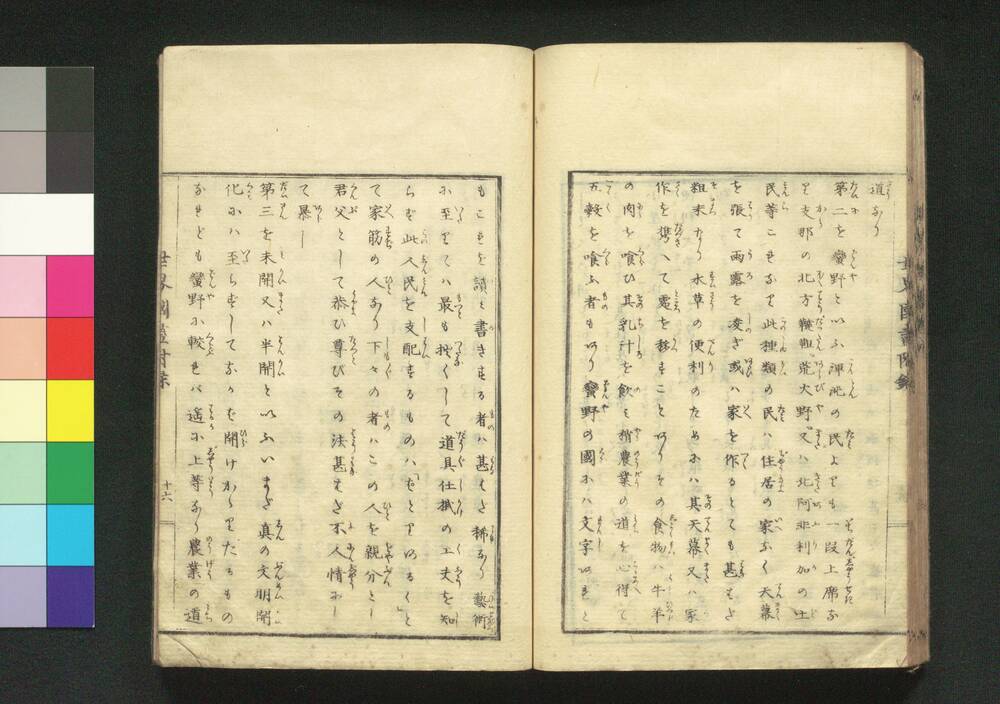 道なり
第二を蠻野といふ渾沌の民よりも一段上席な
り支那の北方韃靼荒火野又ハ北阿非利加の土
民等これなり此種類の民ハ住居の家なく天幕
を張て雨露を凌ぎ或ハ家を作るとても甚だ
粗末なり水草の便利のためにハ其天幕又ハ家
作を携へて處を移すことありその食物ハ牛羊
の肉を喰ひ其乳汁を飲も稍農業の道を心得て
五穀を喰ふ者もあり蠻野の國にハ文字あれど
もこれを讀と書きする者ハ甚だ稀なり藝術
に至りてハ最も拙くして道具仕掛の工夫を知
らず此人民を支配するものハ
て家筋の人あり下々の者ハこの人を親分とし
君父として恭ひ尊びその法甚だ不人情に
て暴し
第三を未開又ハ半開といふいまだ真の文明開
化にハ至らずしてなかば開けかゝりたるもの
なれども蠻野に較れバ遙に上等なり農業の道
世界國盡附録
十六